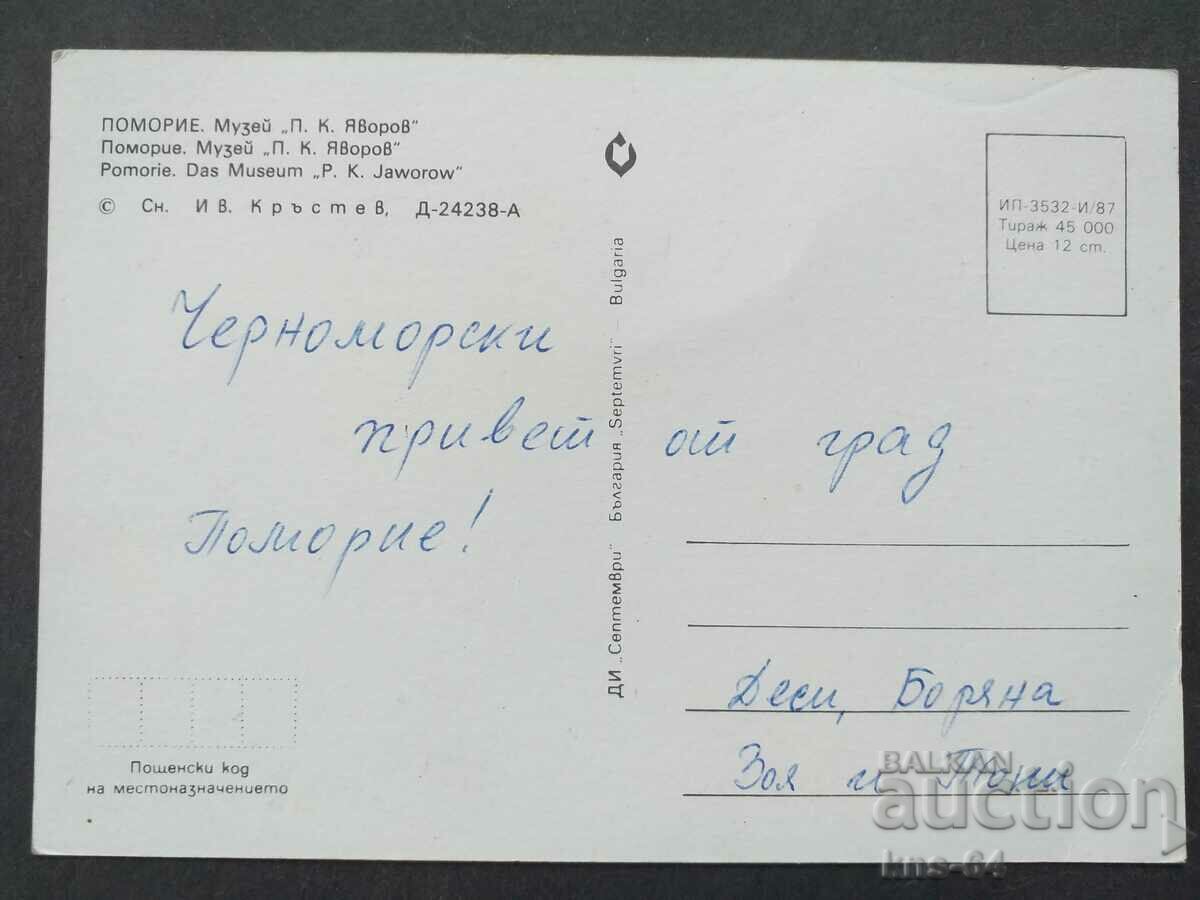 ПОМОРИЕ. Музей „П. К. Яворов"
Поморие. Музей „П. К. Яворов"
Pomorie. Das Museum „P. K. Jaworow"
© Сн. Ив. Кръстев, Д-24238-А
ИП-3532-И/87
Тираж 45 000
Цена 12 ст.
ДИ „Септември" България „Septemvri" — Bulgaria
Черноморски
привет от град
Поморие!
Деси, Боряна
Зоя и Тони
Пощенски код
на местоназначението
BALKAN
auction
kns-64